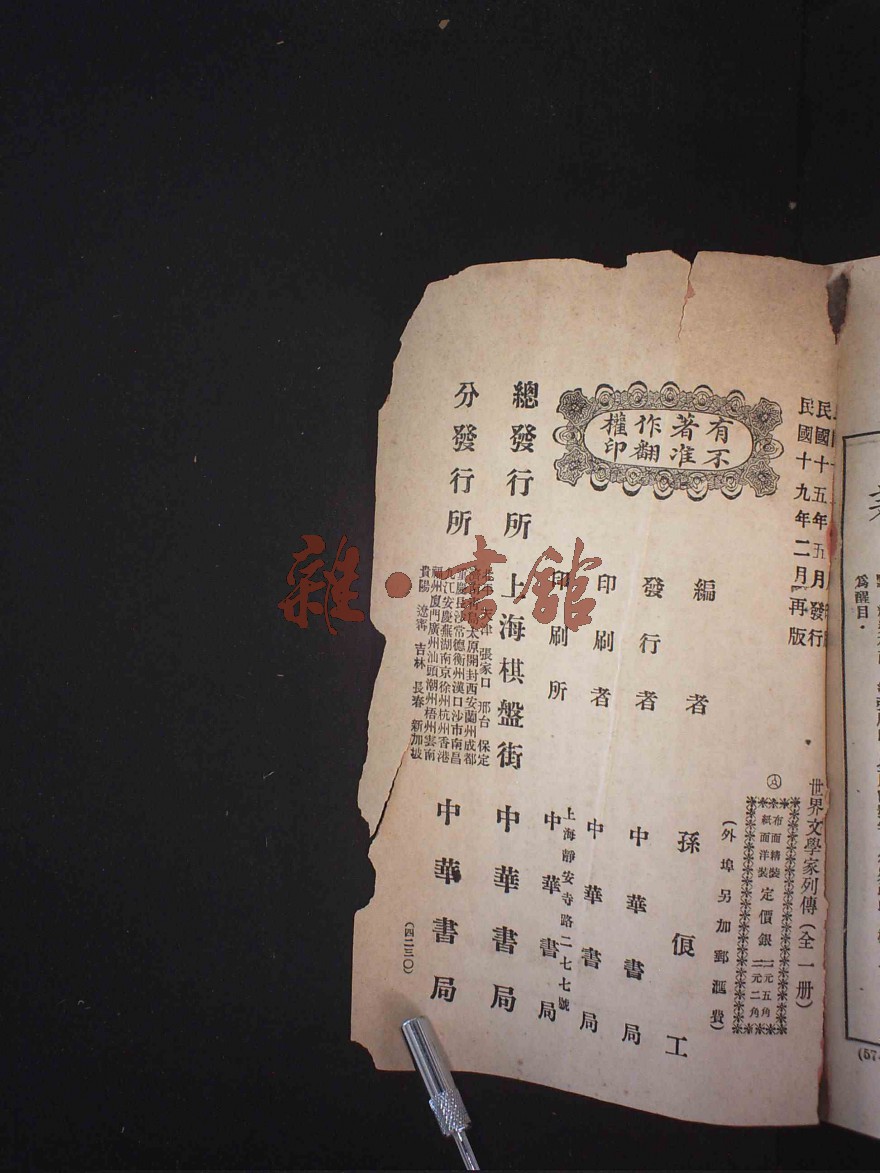 民國十五年五月發行
民國十九年二月再版
有著作權
不准翻印
世界文學家列傳（全一册）
Ⓐ
布面精裝
紙面洋裝
定價銀
一元五角
一元二角
（外埠另加郵滙費）
編者 孫俍工
發行者 中華書局
印刷者 中華書局
印刷所 上海靜安寺路二七七號
中華書局
總發行所 上海棋盤街 中華書局
分發行所 中華書局
天津 張家口 邢台 保定
太原開封西安蘭州成都
常德衡州漢口沙市南昌
九江安慶蕪湖南京徐州杭州香港
福州廈門廣州汕頭潮州梧州雲南
貴陽 遼寧 吉林 長春 新加坡
（四二三〇）
爲醒目．
(57
雜·書館